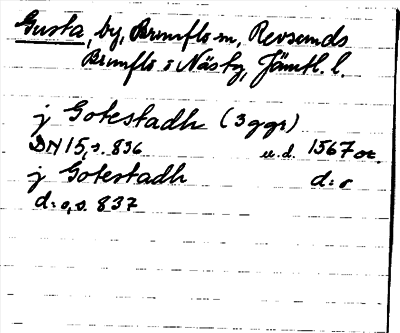 Gusta, by, Brunflo sn, Revsunds
Brunflo o Näsby, Jämtl. l.
j Gotestadh (3 ggr)
DN 15, s. 836 u.d. 1567 or.
j Gotestadh d:o
d:o, s. 837